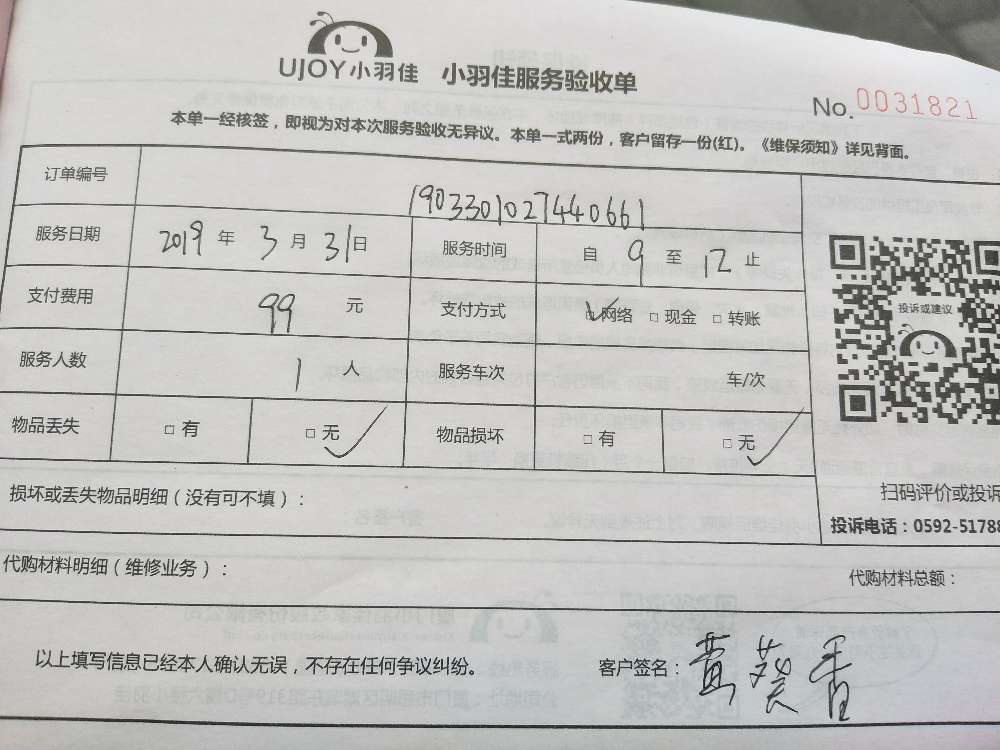 UJOY小羽佳 小羽佳服务验收单
No. 0031821
本单一经核签，即视为对本次服务验收无异议。本单一式两份，客户留存一份(红)。《维保须知》详见背面。
订单编号 1903301027440661
服务日期 2019 年 3 月 31 日 服务时间 自 9 至 12 止
支付费用 99 元 支付方式 ☑网络 □现金 □转账
投诉或建议
服务人数 1 人 服务车次 车/次
物品丢失 □有 □无✓ 物品损坏 □有 □无✓
损坏或丢失物品明细（没有可不填）：
扫码评价或投诉
投诉电话：0592-51788
代购材料明细（维修业务）：
代购材料总额：
以上填写信息已经本人确认无误，不存在任何争议纠纷。 客户签名：黄